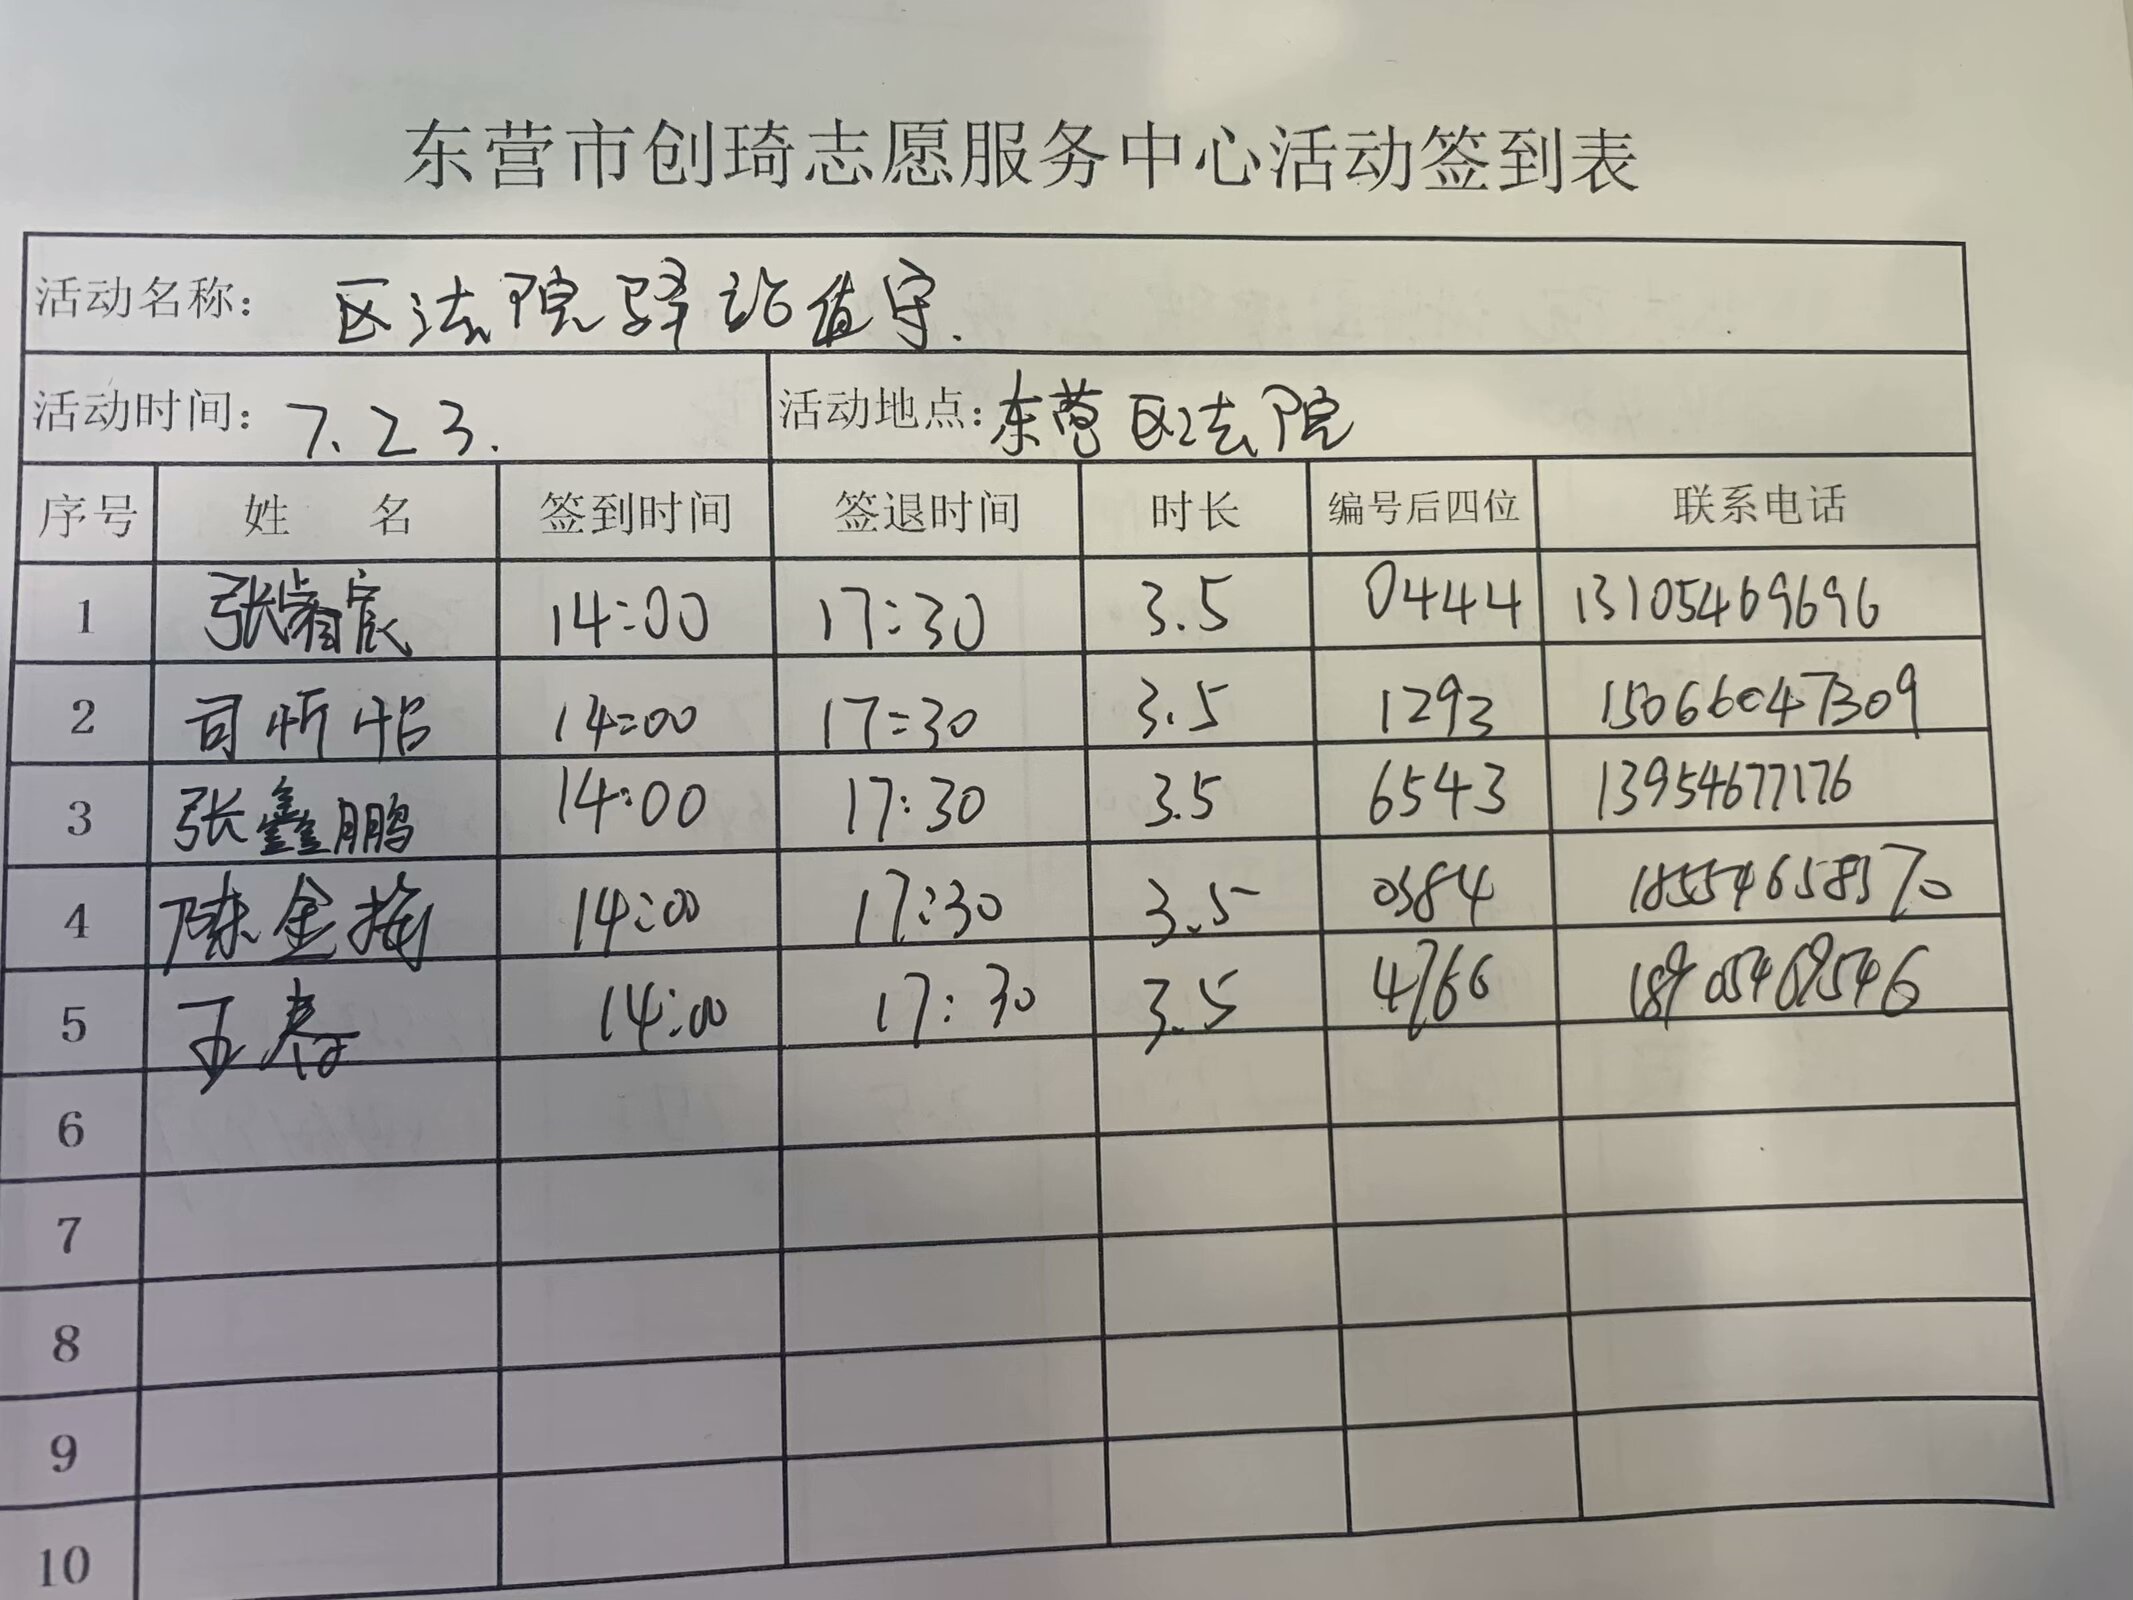 东营市创琦志愿服务中心活动签到表
活动名称: 区法院驿站值守.
活动时间: 7.23. 活动地点: 东营区法院
序号 姓 名 签到时间 签退时间 时长 编号后四位 联系电话
1 张睿宸 14:00 17:30 3.5 0444 13105469696
2 司忻怡 14:00 17:30 3.5 1293 15066047309
3 张鑫鹏 14:00 17:30 3.5 6543 13954677176
4 陈金梅 14:00 17:30 3.5 0384 18554658370
5 王春 14:00 17:30 3.5 4766
6
7
8
9
10